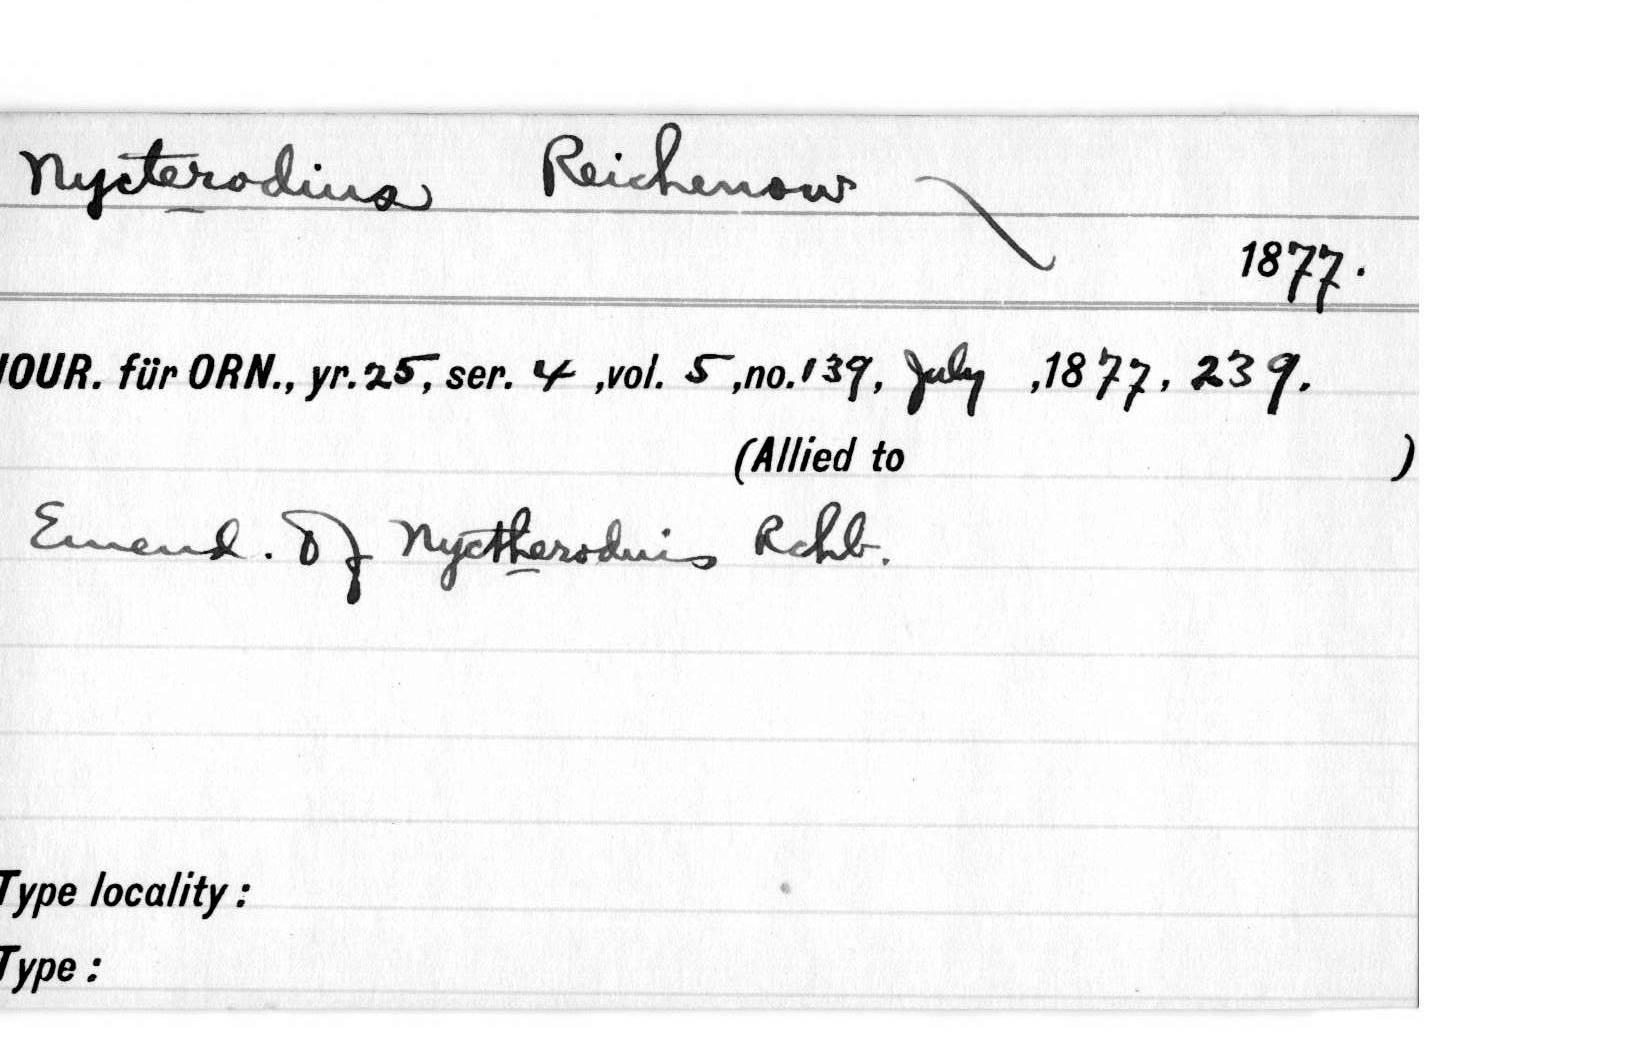 Nycterodius Reichenow
1877.
JOUR. für ORN., yr. 25, ser. 4, vol. 5, no. 139, July, 1877, 239.
(Allied to )
Emend. of Nyctherodius Rchb.
Type locality:
Type: